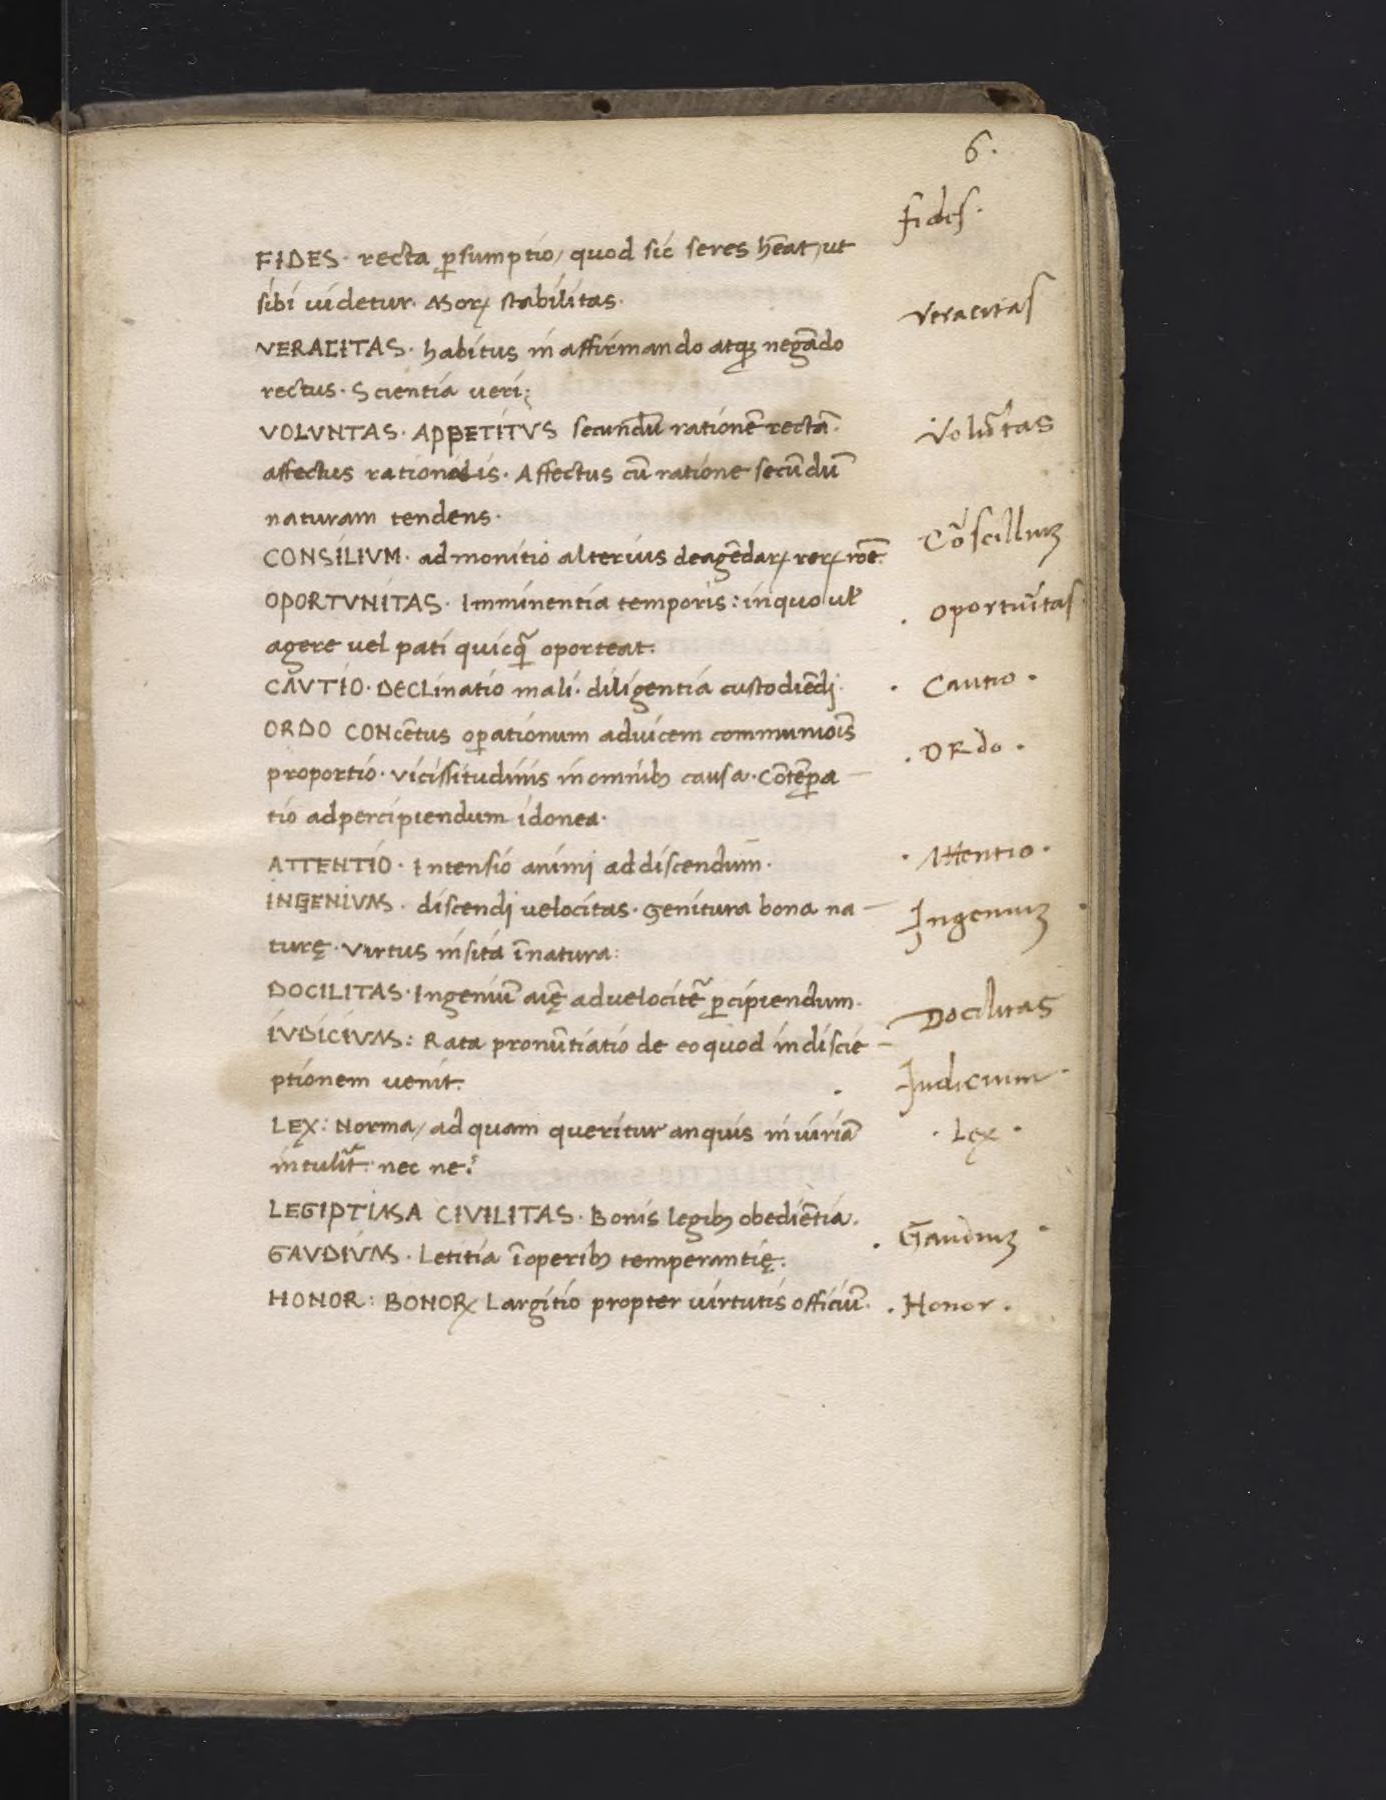 6.
fides.
FIDES. recta p̱sumptio, quod sic seres hēat, ut
sibi uidetur. Morꝝ stabilitas.
Veracitas
VERACITAS. habitus in affirmando atqꝫ negādo
rectus. Scientia veri;
Volūtas
VOLVNTAS. APPETITVS secundū rationē rectā.
affectus rationalis. Affectus cū ratione secūdū
naturam tendens.
Cōscilluꝫ
CONSILIVM. admonitio alterius deagēdarꝝ rerꝝ rōē.
OPORTVNITAS. Imminentia temporis: inquo ul'
. oportuītas
agere vel pati quicq̄ oporteat.
CAVTIO. DECLinatio mali. diligentia custodiēdj.
. Cautio .
ORDO CONcētus oꝑationum aduicem communiōis
. ORdo .
proportio. vicissitudinis in omnibꝫ causa. Cōtēꝑa -
tio adpercipiendum idonea.
ATTENTIO. Intensio animj addiscendum̄.
. Attentio .
INGENIVM. discendj uelocitas. Genitura bona na -
Ingeniuꝫ .
turę. Virtus insita īnatura:
DOCILITAS. Ingeniū aīę aduelocitē ꝑcipiendum.
Docilitas
IVDICIVM: Rata pronūtiatio de eoquod indiscie -
ptionem uenit.
Judicium .
LEX: Norma, adquam queritur anquis iniuriā
. Lex .
intulit̄. nec ne?
LEGIPTIMA CIVILITAS. Bonis legibꝫ obediētia.
. Gaudiuꝫ .
GAVDIVM. Letitia īoperibꝫ temperantię.
HONOR: BONORꝝ Largitio propter uirtutis officiū.
. Honor .